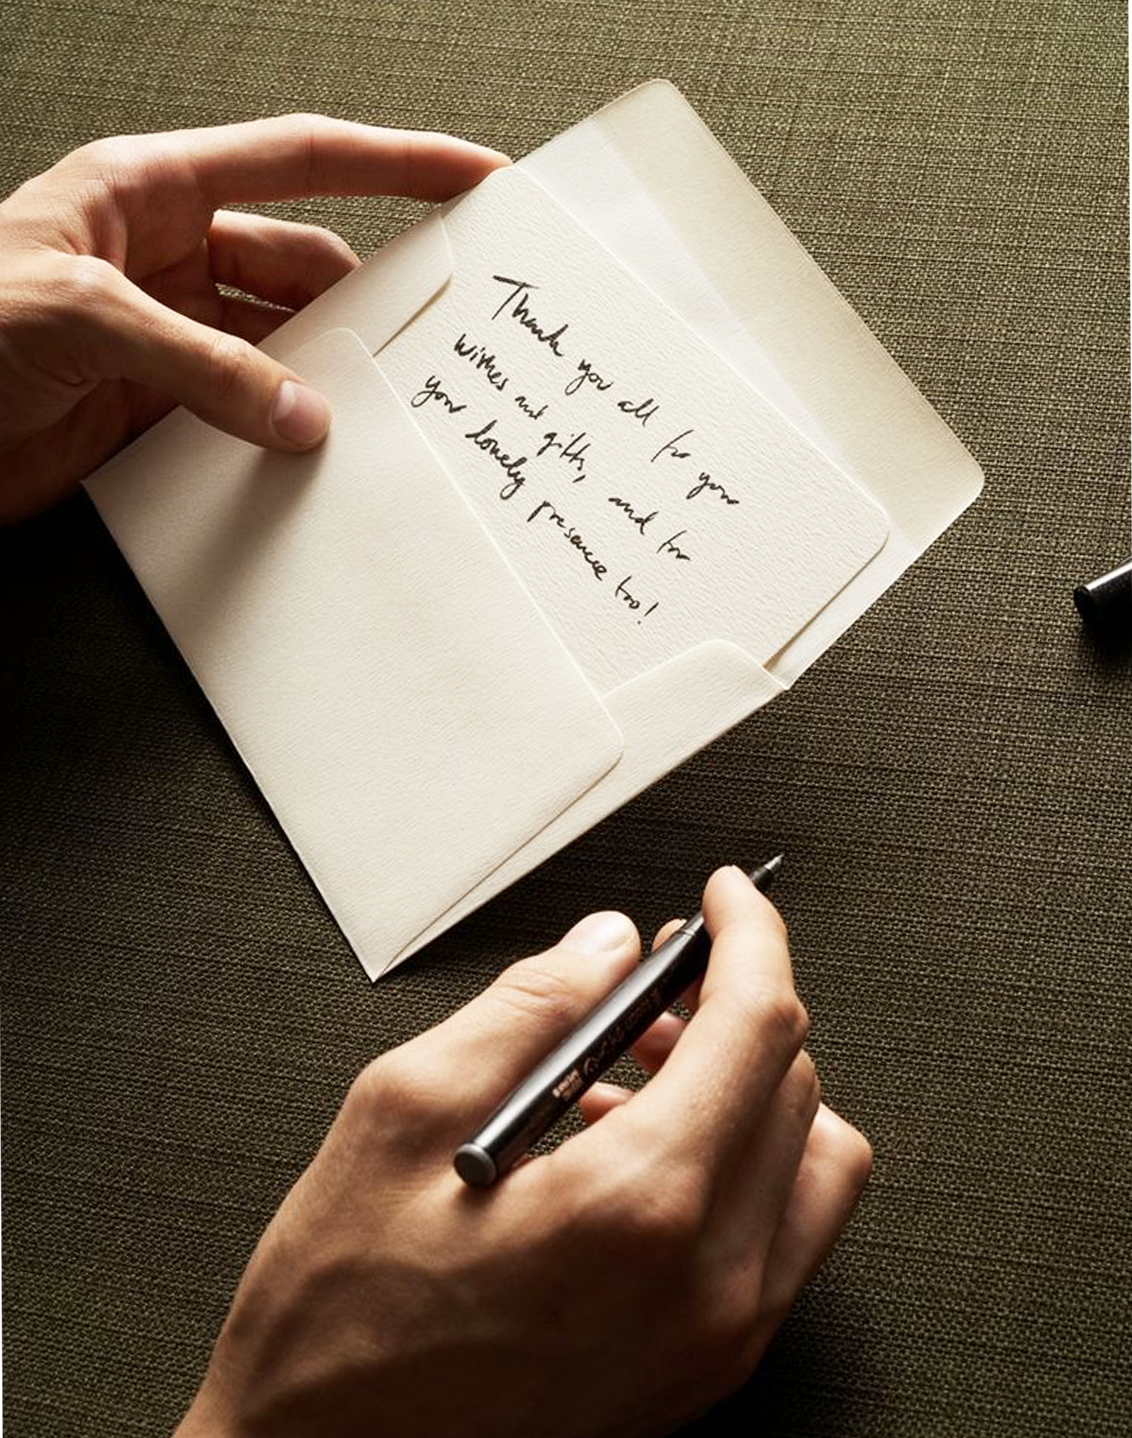 Thank you all for your
wishes and gifts, and for
your lovely presence too!